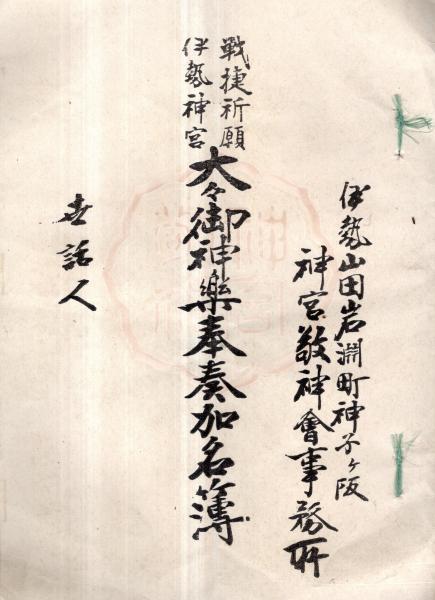 伊勢山田岩淵町神子ヶ阪
神宮敬神會事務所
戰捷祈願
伊勢神宮
大々御神樂奉奏加名簿
世話人